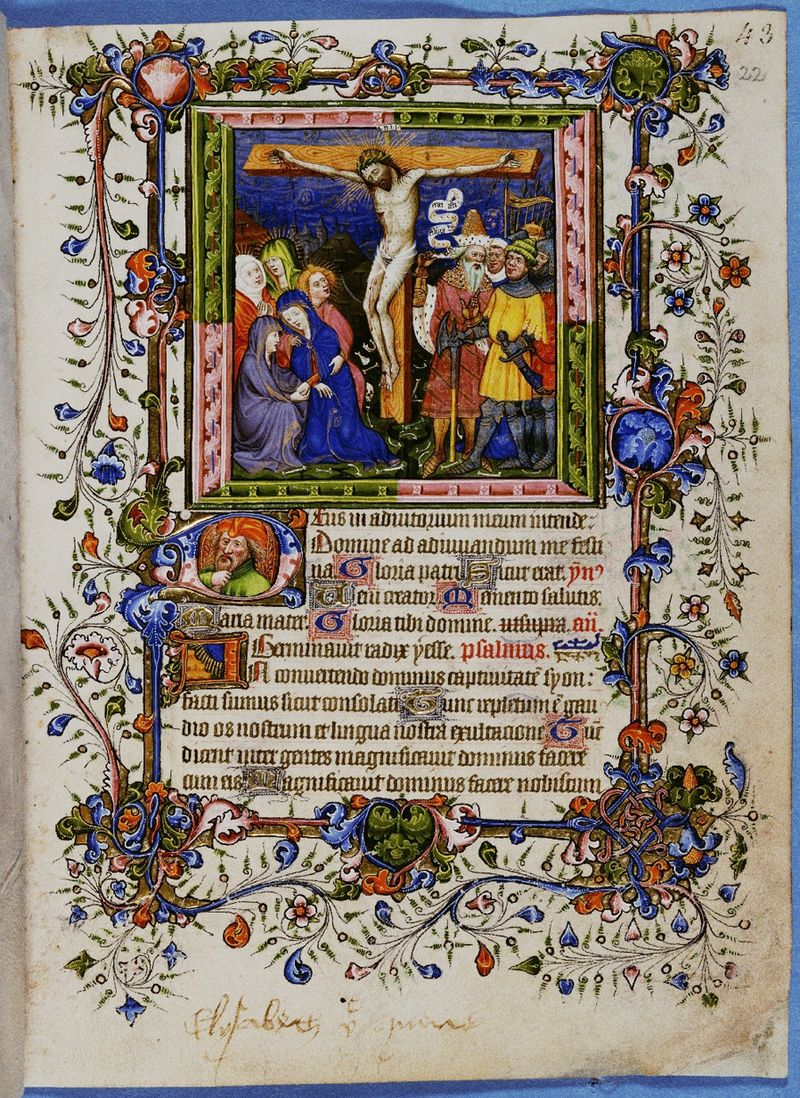 43
22
Deus in adiutorium meum intende:
Domine ad adiuuandum me festi
na Gloria patri Sicut erat. ympn⁹
Ueni creator Memento salutis.
Maria mater. Gloria tibi domine. ut supra. an̄.
Germinauit radix yesse. psalmus.
IN conuertendo dominus captiuitatē syon:
facti sumus sicut consolati Tunc repletum ē gau
dio os nostrum et lingua nostra exultacione Tūc
dicent inter gentes magnificauit dominus facere
cum eis Magnificauit dominus facere nobiscum
Elysabeth yᵉ quene